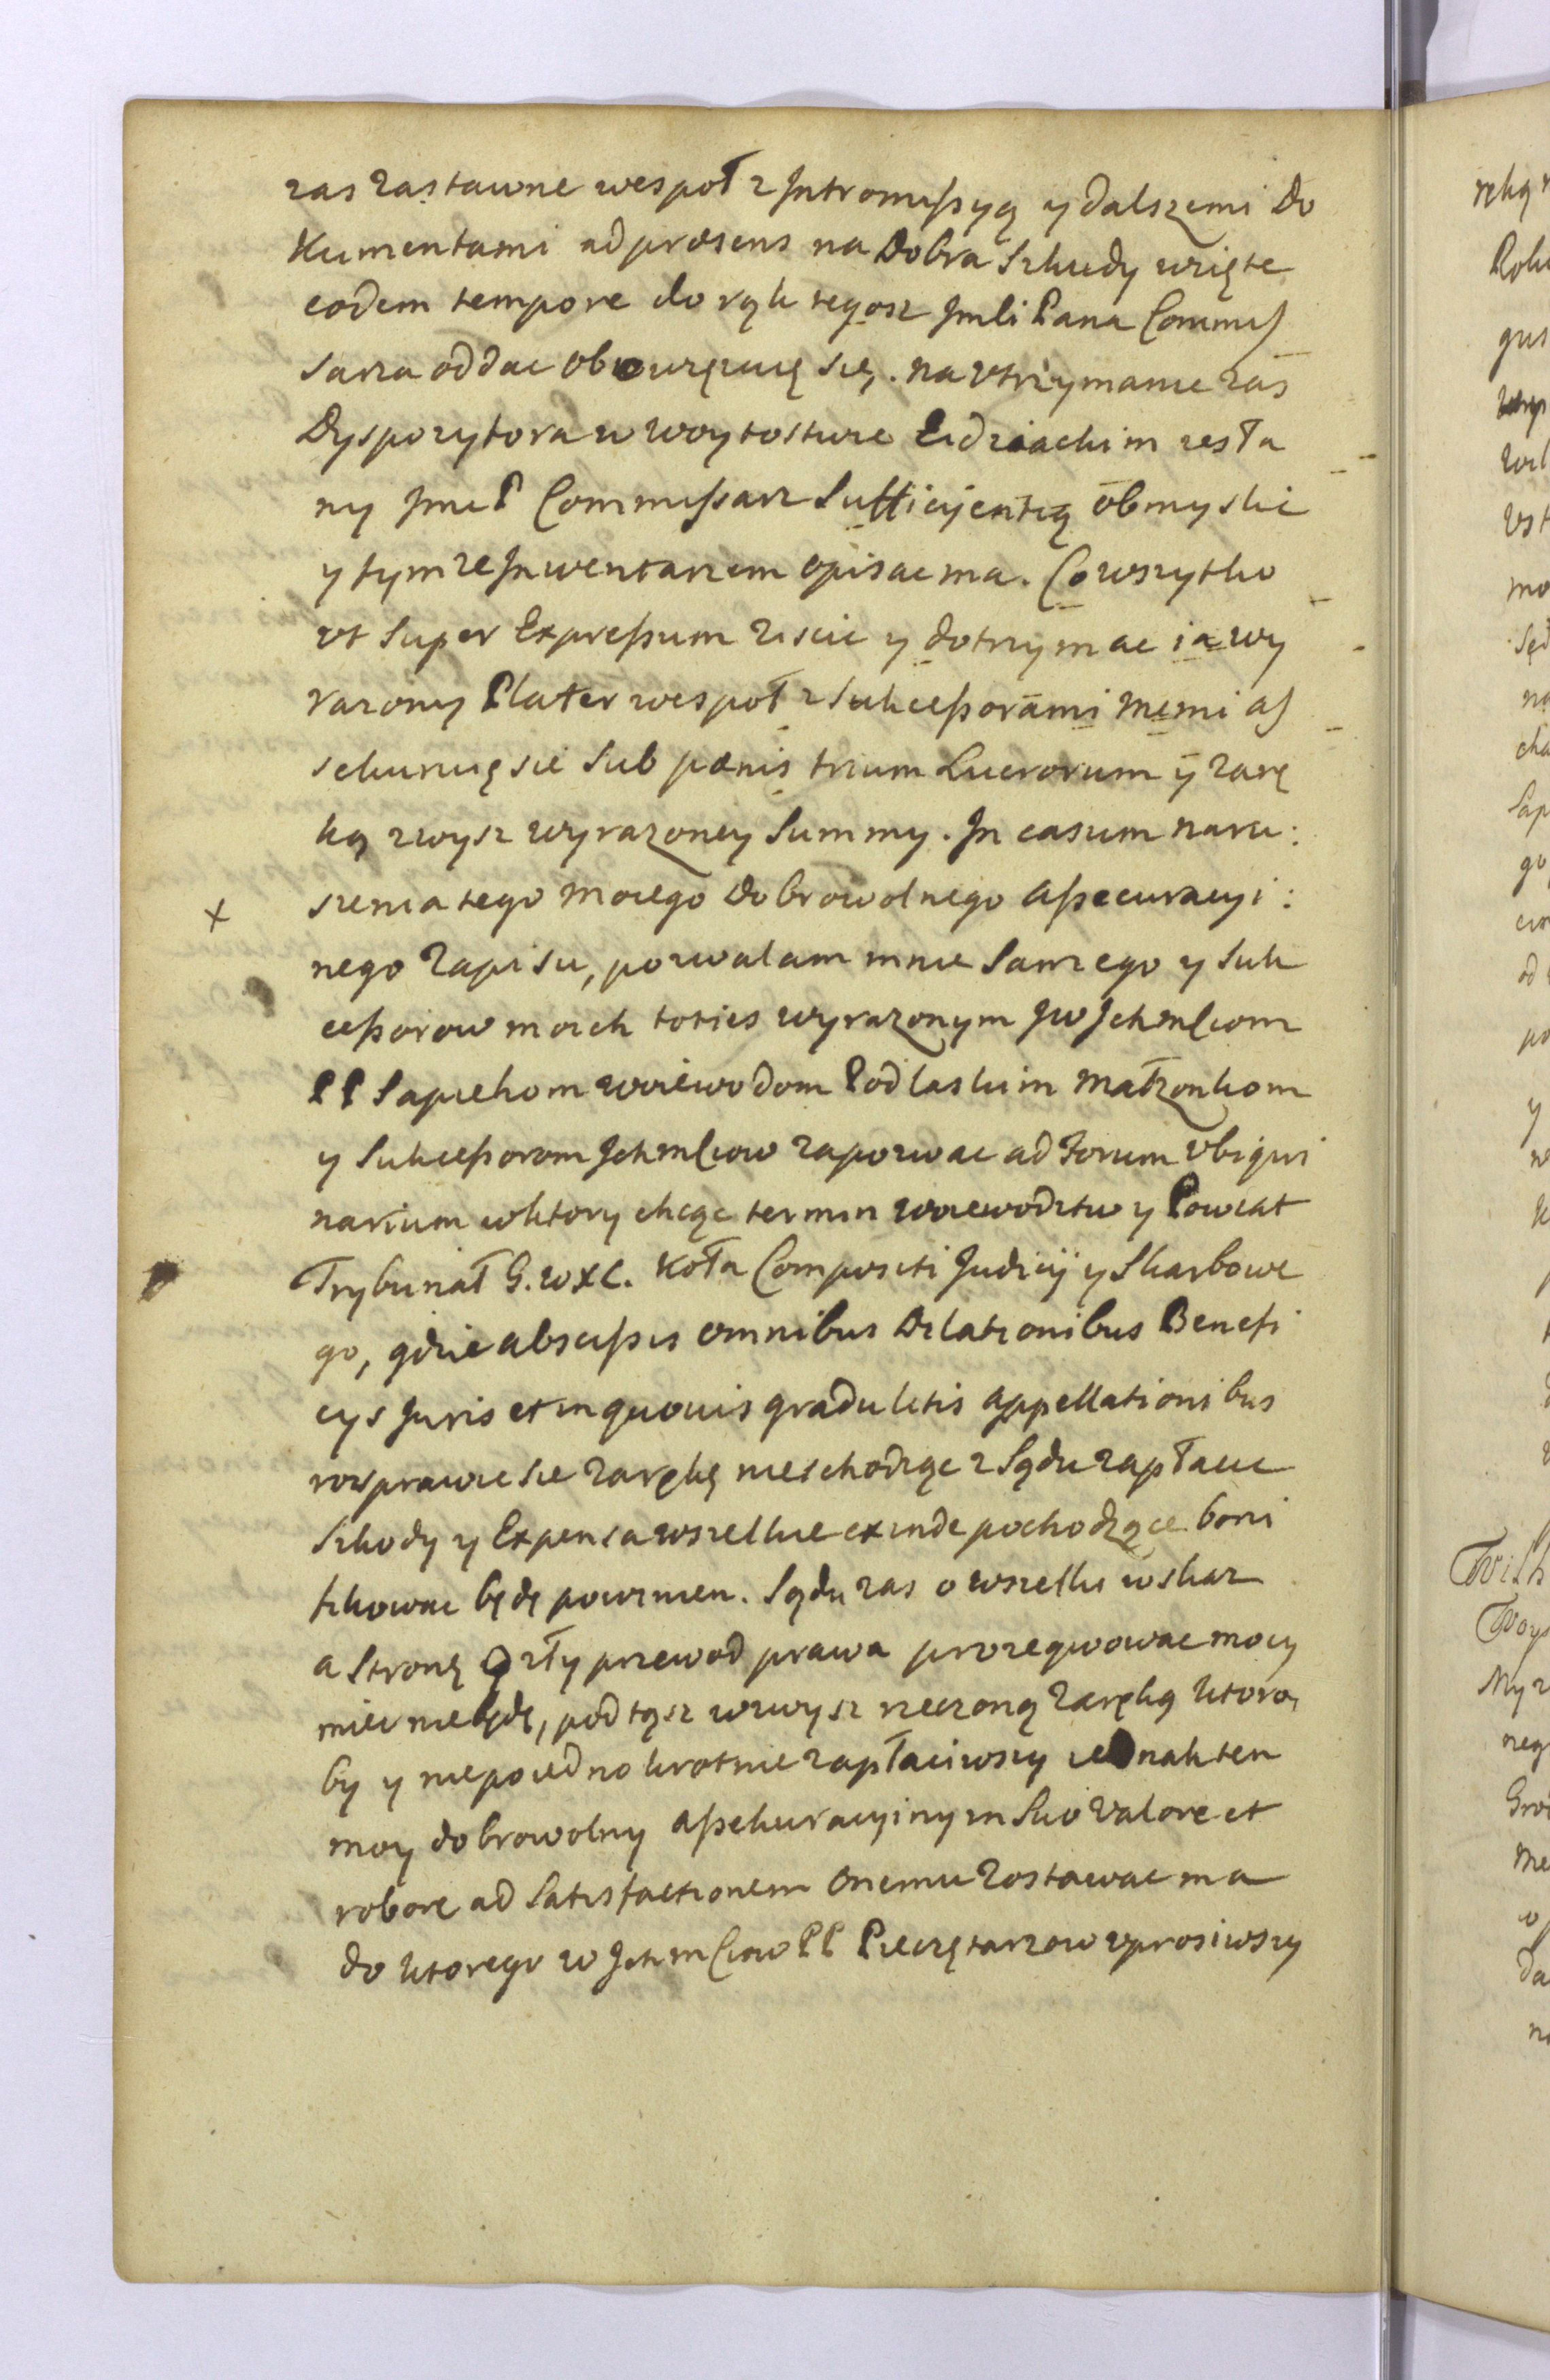 zas zastawne wespoł z Intromissyą y dalszemi Do
kumentami ad præsens na Dobra Szkudy wzięte
eodem tempore do rąk tegosz Jmsci Pana Commis
sarza oddac obowięzuię się. na vtrzymanie zas
Dyspozytora w woytostwie Zidziackim zosta
ny Jmc P Commissarz Sufficijentią obmyslic
y tymze Inwentarzem opisac ma. Co wszytko
vt super Expressum ziscic y dotrzymac ia wy
razony Plater wespoł z Sukcessorami memi as
sekuruię sie Sub pænis trium Lucrorum y zarę
ką zwysz wyrazoney Summy. In casum naru:
szenia tego moiego dobrowolnego assecuracyi:
nego Zapisu, pozwalam mnie samego y suk
cessorow moich toties wyrazonym JW Ichmsciom
PP Sapiehom woiewodom Podlaskim Małzonkom
y Sukcessorom Ichmsciow zapozwac ad Forum vbiqui
narium w ktory chcąc termin woiewodztw y Powiat
Trybunał G. W X L. Koła Compositi Judicij y Skarbowe
go, gdzie abscissis omnibus Dilationibus Benefi
cys Juris et in quouis gradu litis appellationibus
rosprawic sie zarękę nieschodząc z Sądu zapłacic
szkody y Expensa wszelkie exinde pochodzące boni
fikowac będę powinien. Sąd zas o wszelki wskaz
a stronę o zły przewod prawa prozeqwowac mocy
miec niebędę, pod tąsz wzwysz rzeczoną zaręką ktora
by y niepoiednokrotnie zapłaciwszy iednak ten
moy dobrowolny assekuracyiny in suo valore et
robore ad Satisfactionem onemu zostawac ma
do ktorego w Ichmsciow PP Pieczętarzow vprosiwszy